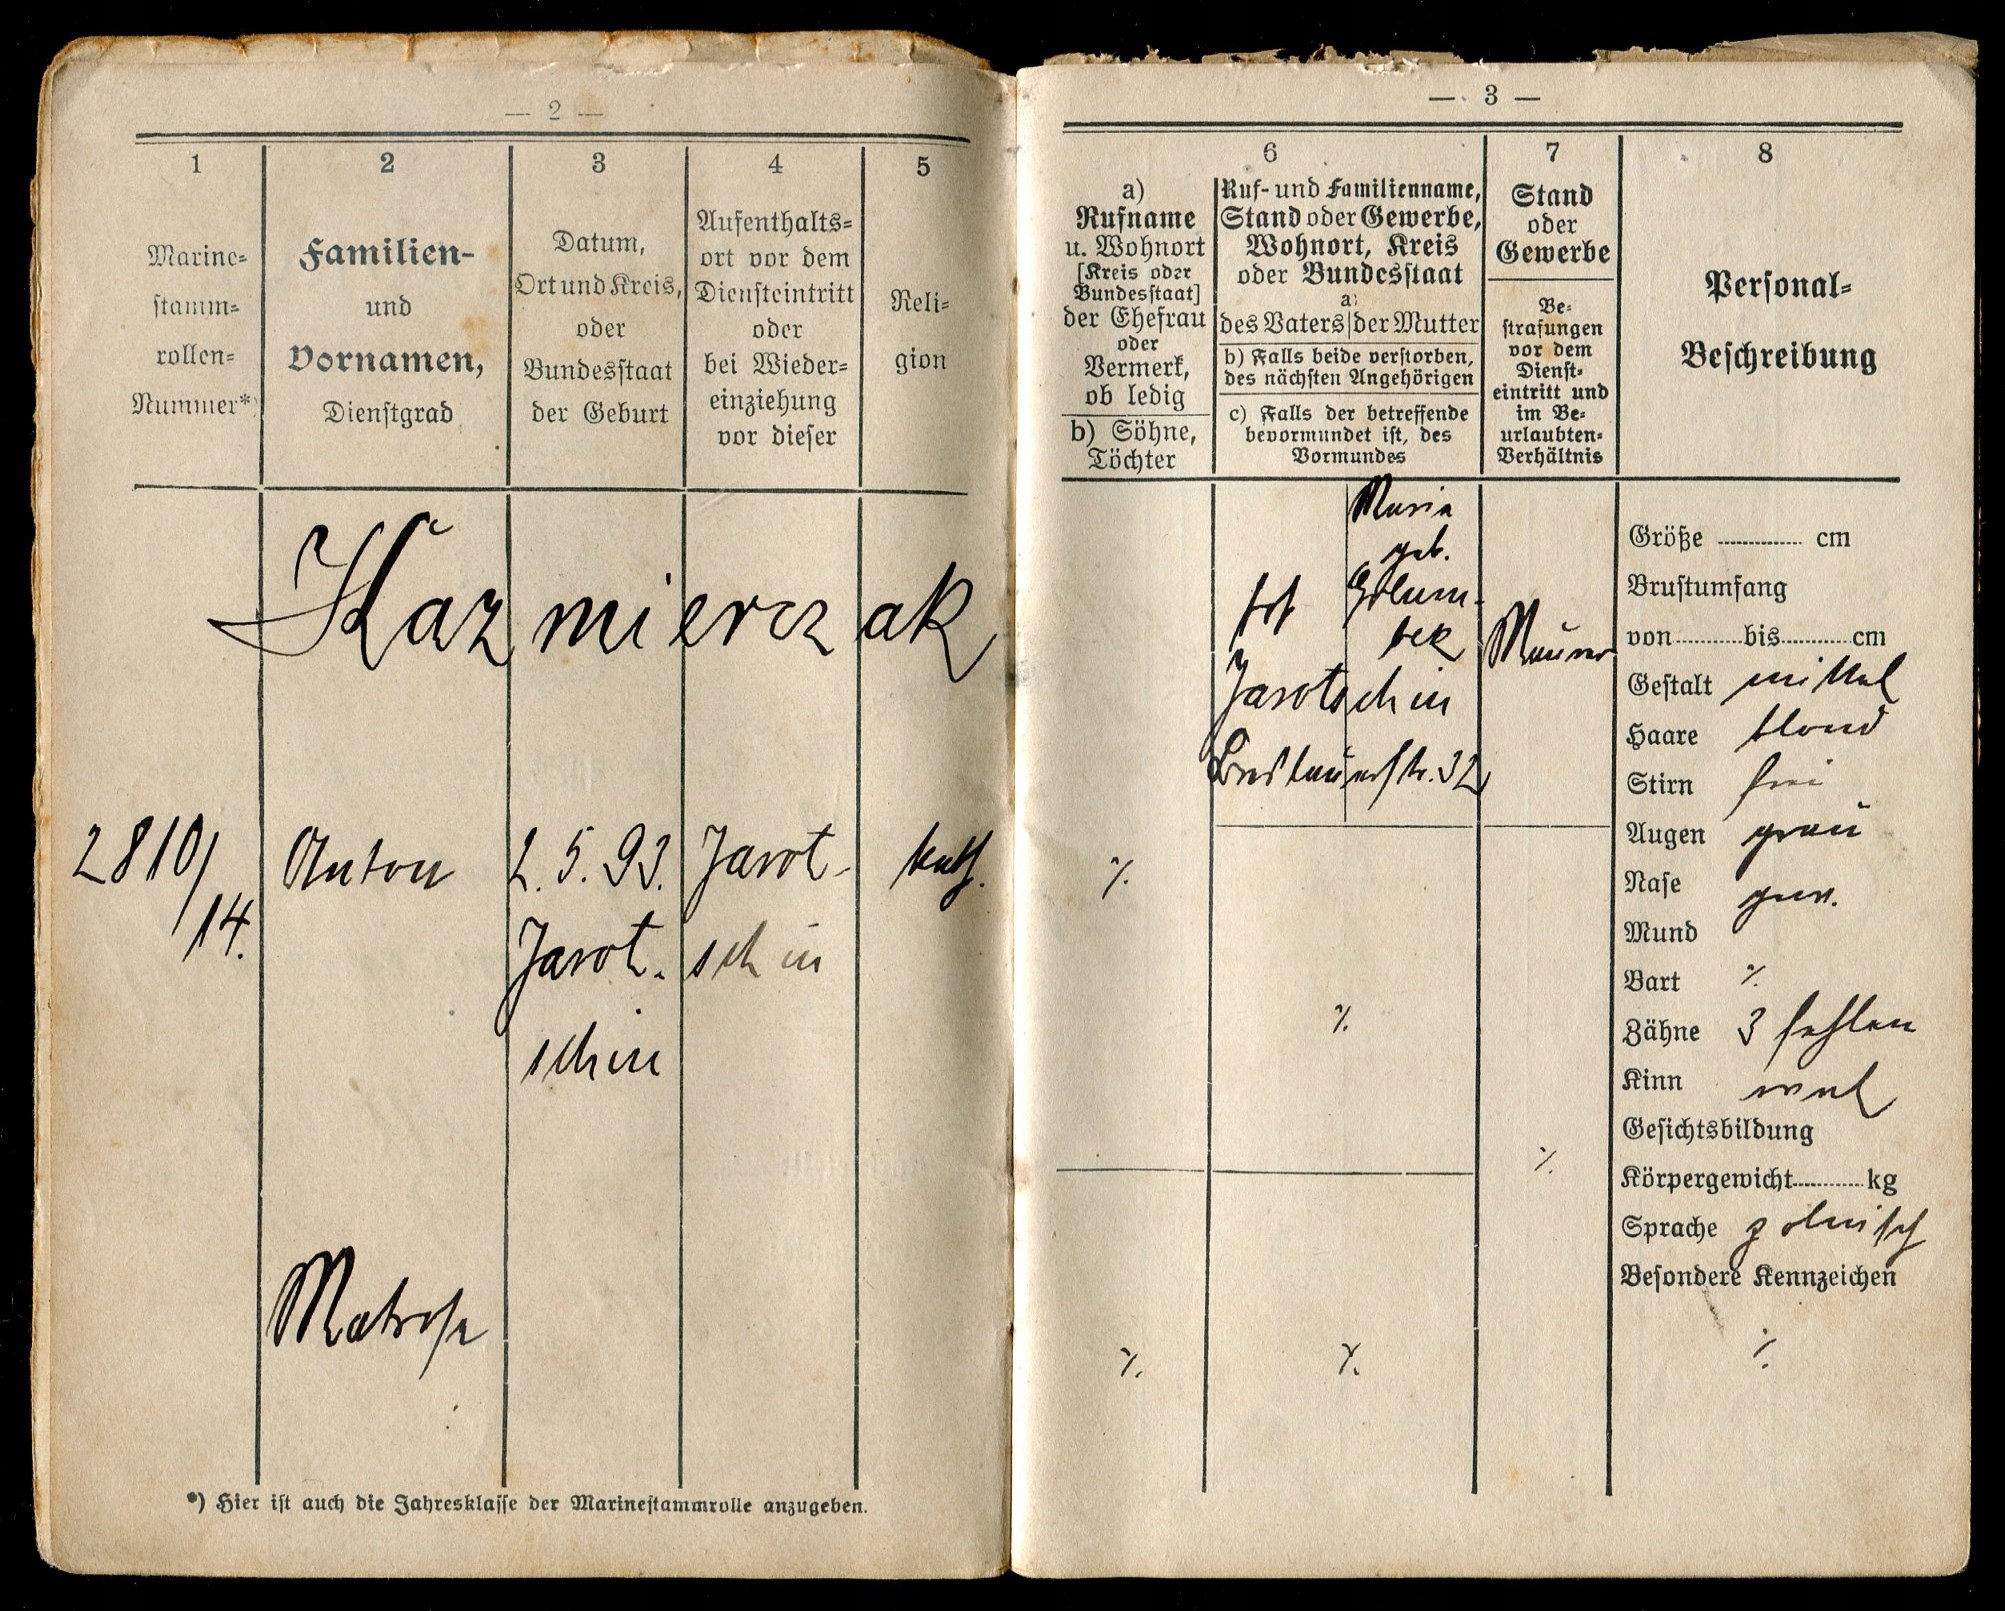 — 2 —
1
Marine-
stamm-
rollen-
Nummer*)
2
Familien-
und
Vornamen,
Dienstgrad
3
Datum,
Ort und Kreis,
oder
Bundesstaat
der Geburt
4
Aufenthalts-
ort vor dem
Diensteintritt
oder
bei Wieder-
einziehung
vor dieser
5
Reli-
gion
Kazmierczak
2810/
14.
Anton
Matrose
2. 5. 93.
Jarot-
schin
Jarot-
schin
kath.
*) Hier ist auch die Jahresklasse der Marinestammrolle anzugeben.
— 3 —
6
a)
Rufname
u. Wohnort
[Kreis oder
Bundesstaat]
der Ehefrau
oder
Vermerk,
ob ledig
b) Söhne,
Töchter
Ruf- und Familienname,
Stand oder Gewerbe,
Wohnort, Kreis
oder Bundesstaat
a)
des Vaters | der Mutter
b) Falls beide verstorben,
des nächsten Angehörigen
c) Falls der betreffende
bevormundet ist, des
Vormundes
7
Stand
oder
Gewerbe
Be-
strafungen
vor dem
Dienst-
eintritt und
im Be-
urlaubten-
Verhältnis
8
Personal-
Beschreibung
Maria
geb.
Golum-
bek
Jarotschin
Breslauerstr. 32
Maurer
·/.
·/.
·/.
·/.
·/.
Größe ............ cm
Brustumfang
von ......... bis ......... cm
Gestalt mittel
Haare blond
Stirn frei
Augen grau
Nase gew.
Mund
Bart ·/.
Zähne 3 fehlen
Kinn oval
Gesichtsbildung
Körpergewicht ......... kg
Sprache polnisch
Besondere Kennzeichen
·/.